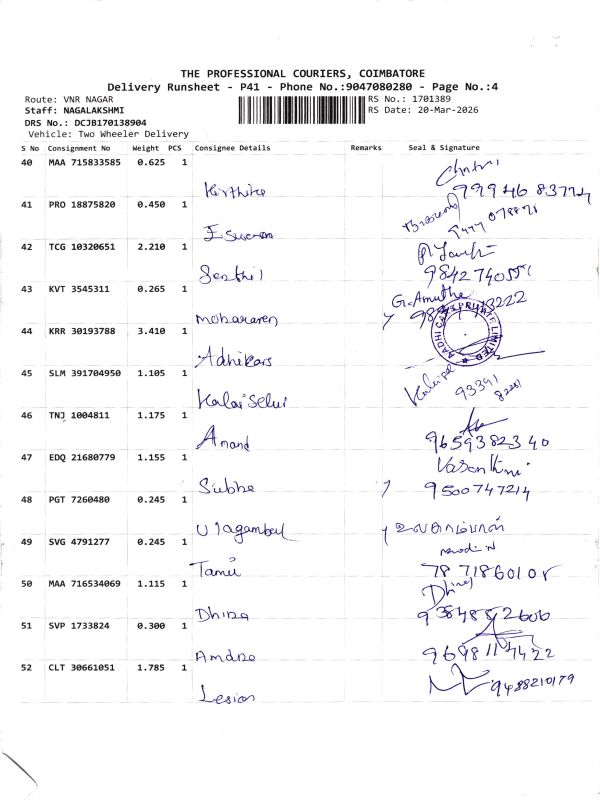 THE PROFESSIONAL COURIERS, COIMBATORE
Delivery Runsheet - P41 - Phone No.:9047080280 - Page No.:4
Route: VNR NAGAR
RS No.: 1701389
Staff: NAGALAKSHMI
RS Date: 20-Mar-2026
DRS No.: DCJB170138904
Vehicle: Two Wheeler Delivery
S No Consignment No Weight PCS Consignee Details Remarks Seal & Signature
40 MAA 715833585 0.625 1
Kirthika 99946 83774
41 PRO 18875820 0.450 1
Eswaran
42 TCG 10320651 2.210 1
Senthil
43 KVT 3545311 0.265 1
G. Amutha
Mobararen
44 KRR 30193788 3.410 1
AADHI CARS PRIVATE LIMITED
Adhikars
45 SLM 391704950 1.105 1
Kalai Selvi 93391
46 TNJ 1004811 1.175 1
Anand 9659382340
47 EDQ 21680779 1.155 1
Vasanthi
Subha 9500747214
48 PGT 7260480 0.245 1
Ulagambal உலகாம்பாள்
49 SVG 4791277 0.245 1
Tamil 7871860108
50 MAA 716534069 1.115 1
Dhina
Dhina 9384882606
51 SVP 1733824 0.300 1
Amdra
52 CLT 30661051 1.785 1
9488210179
Lesion